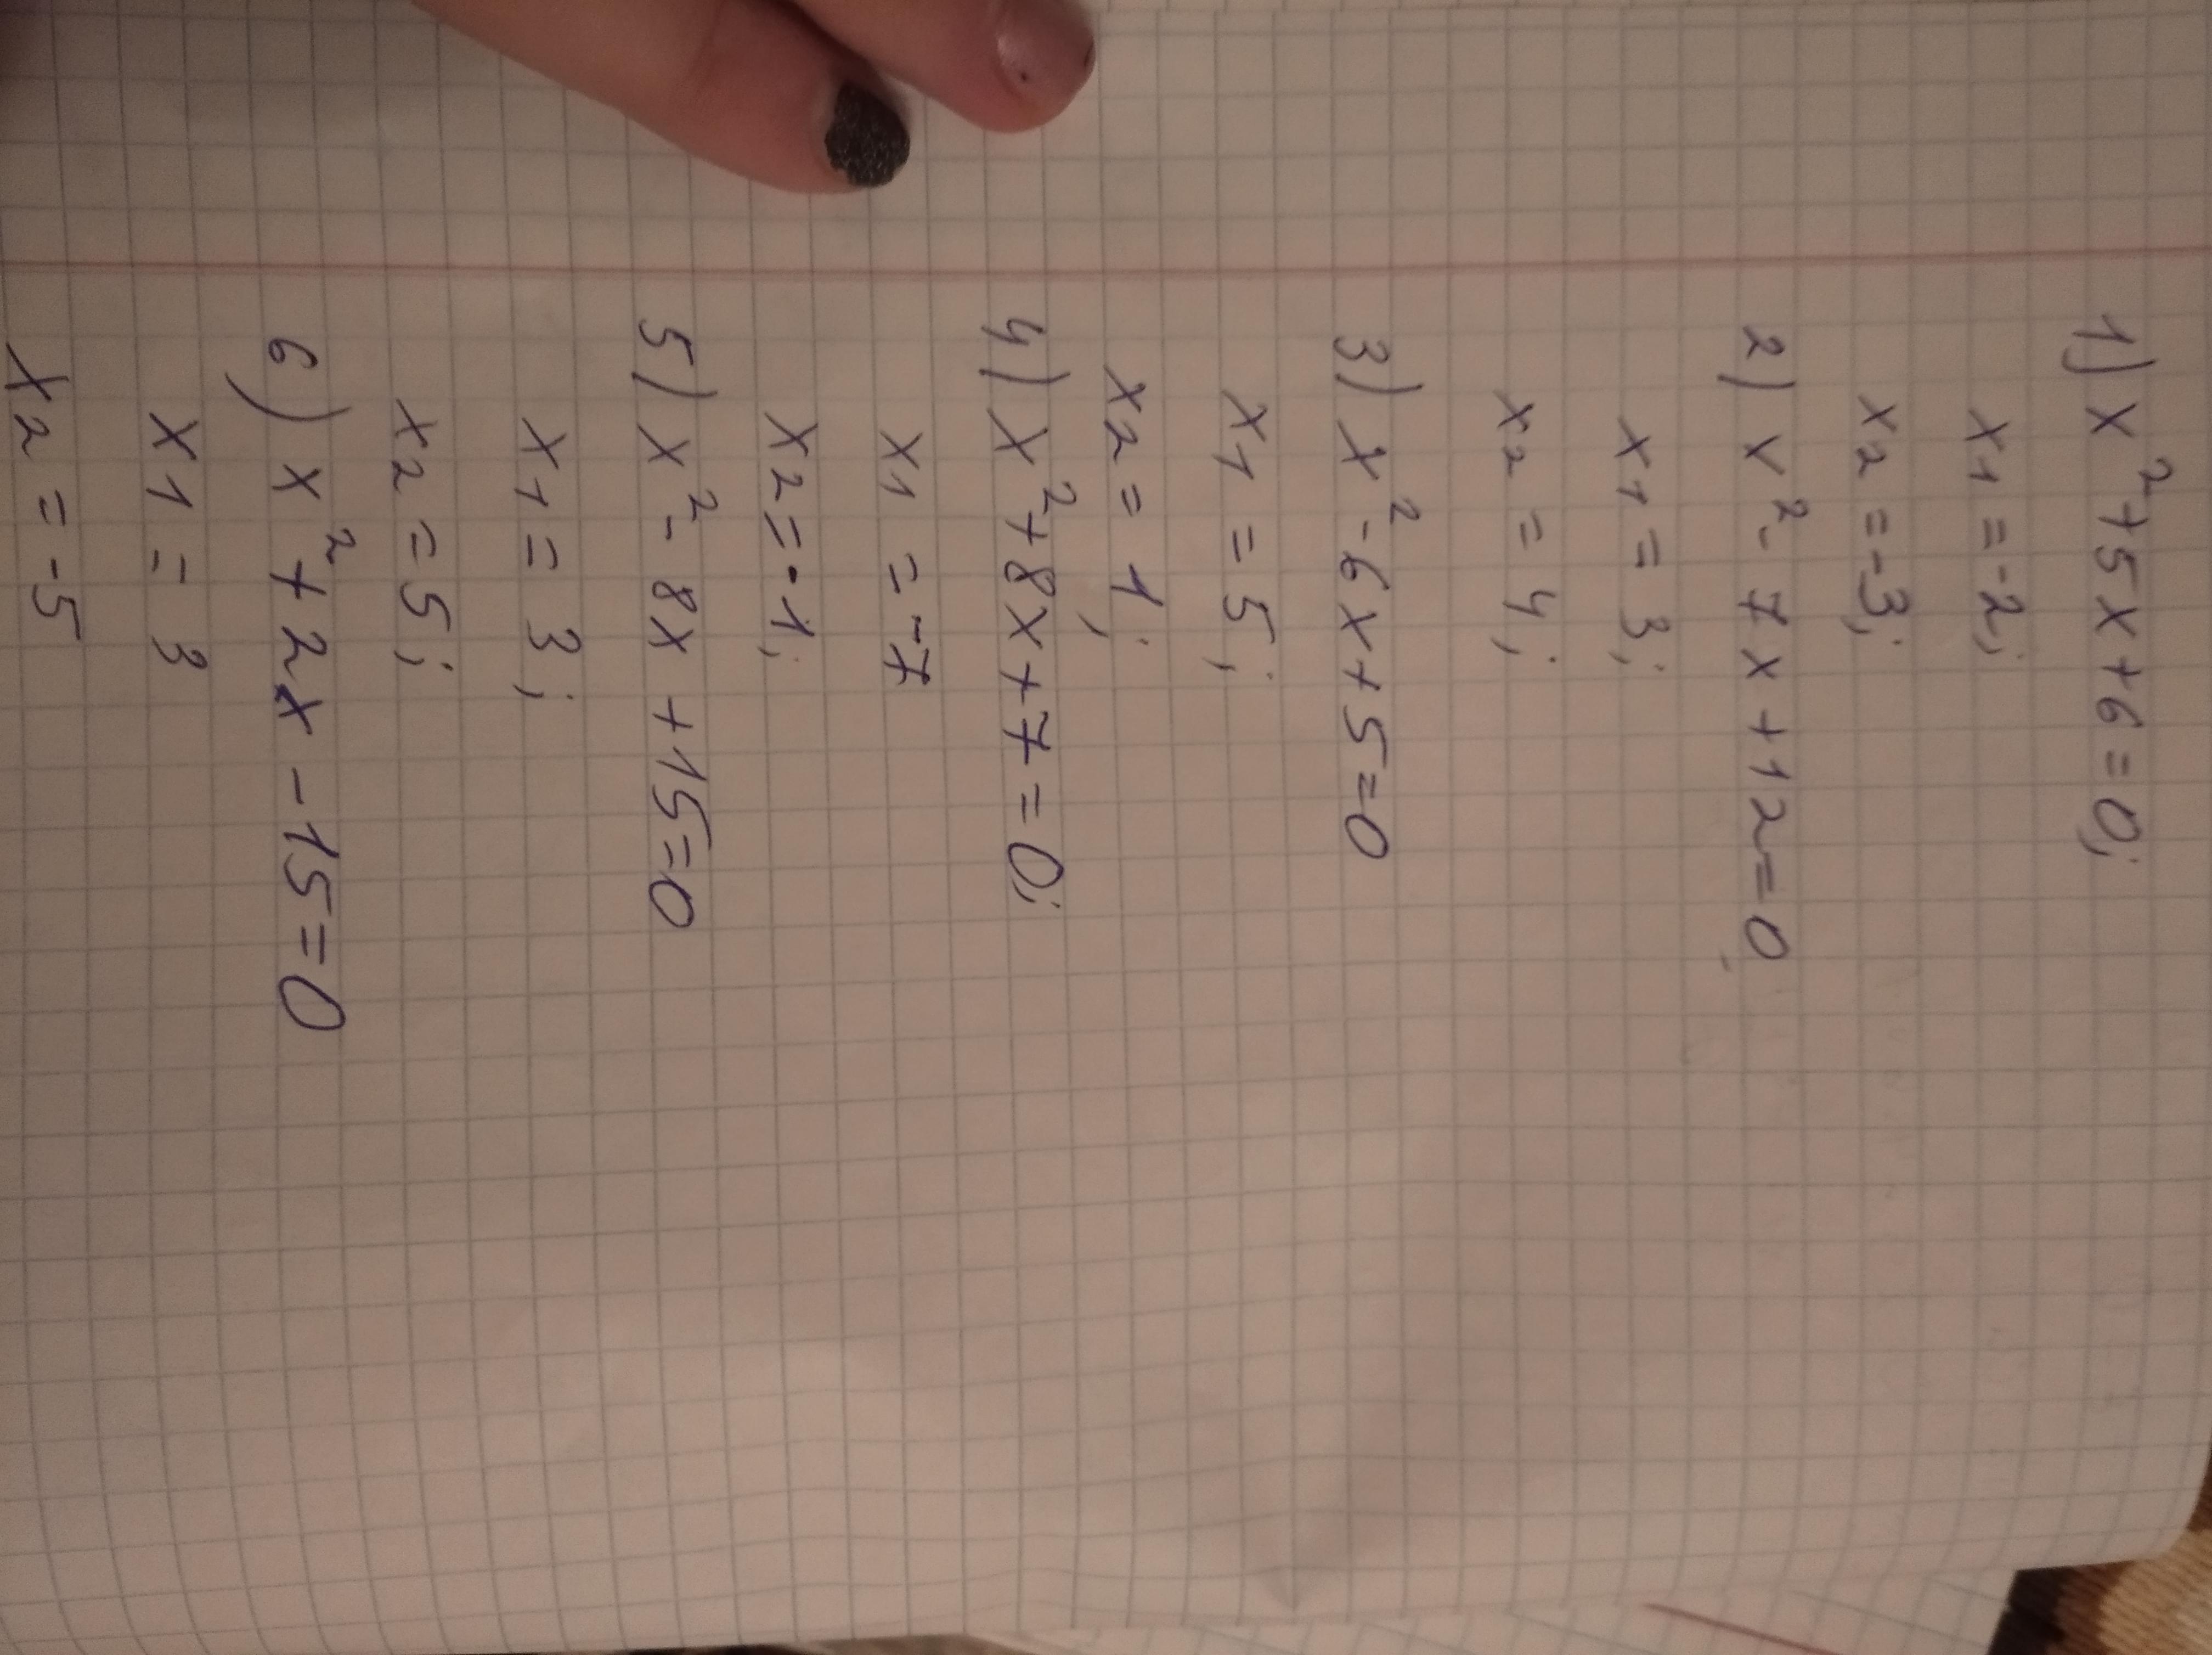 1) x²+5x+6=0;
x1=-2;
x2=-3;
2) x²-7x+12=0
x1=3;
x2=4;
3) x²-6x+5=0
x1=5;
x2=1;
4) x²+8x+7=0;
x1=-7
x2=-1;
5) x²-8x+15=0
x1=3;
x2=5;
6) x²+2x-15=0
x1=3
x2=-5